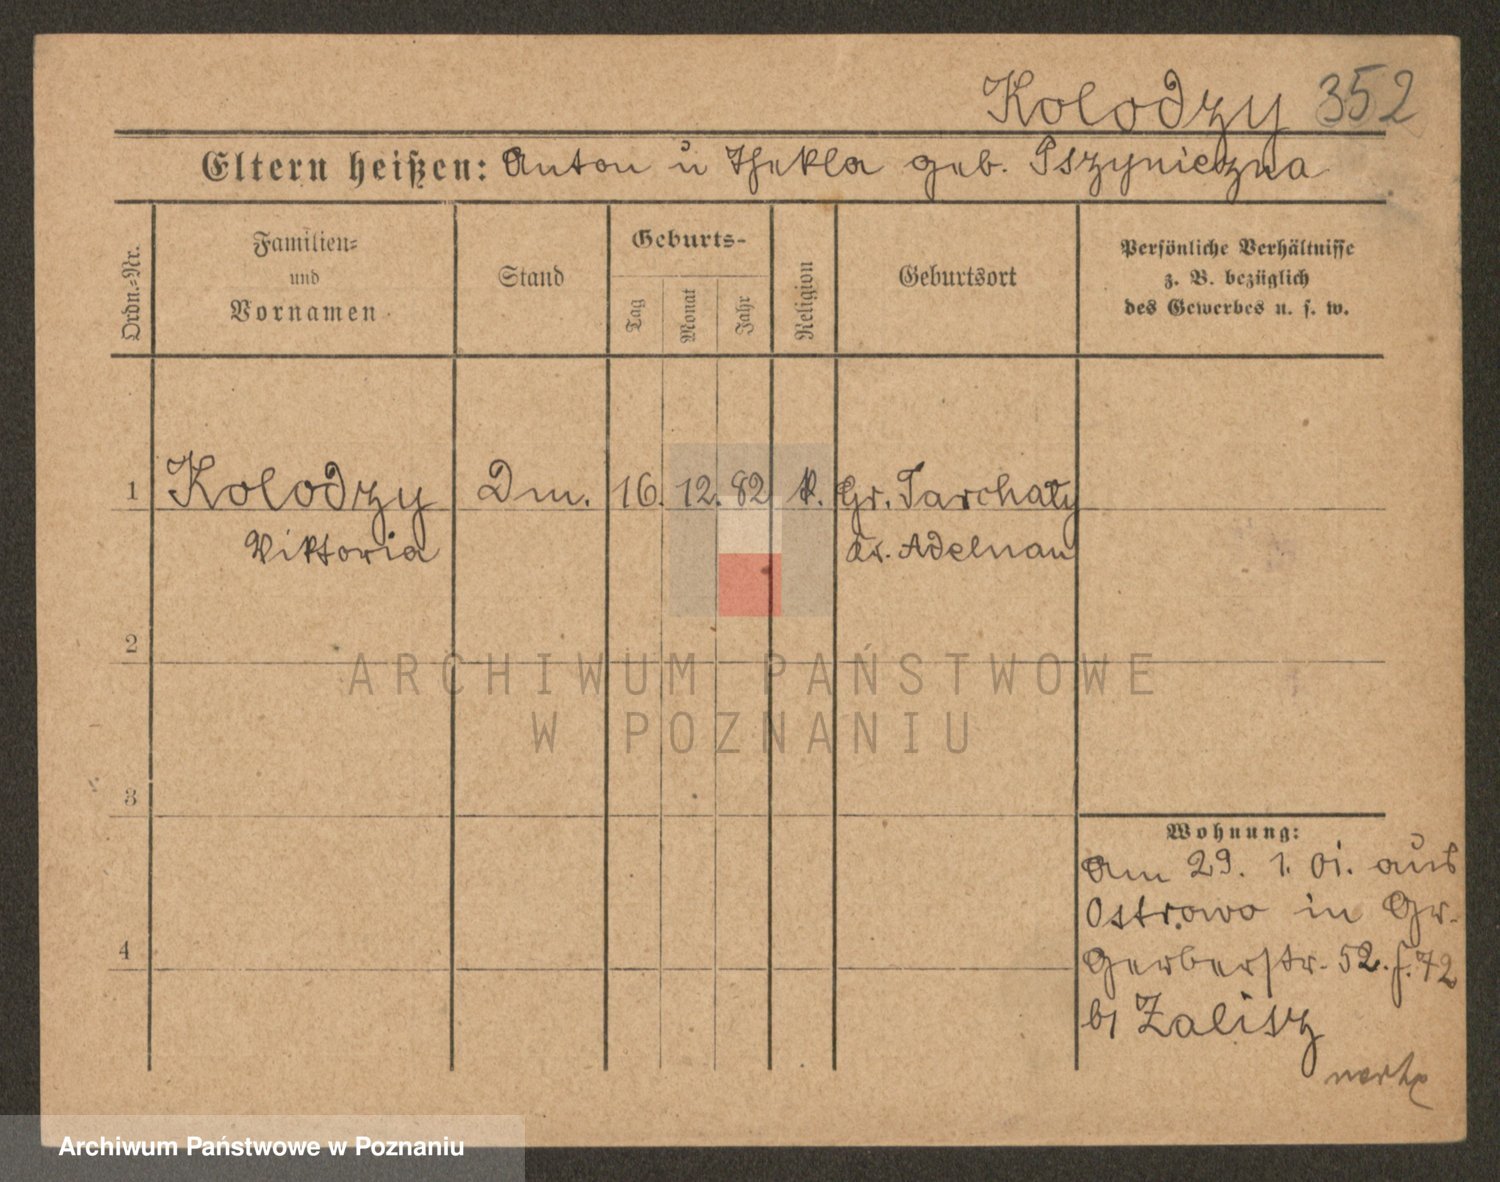 Kolodzy 352
Eltern heißen: Anton u Thekla geb. Pszyniczna
Ordn.-Nr.
Familien-
und
Vornamen
Stand
Geburts-
Tag
Monat
Jahr
Religion
Geburtsort
Persönliche Verhältnisse
z. B. bezüglich
des Gewerbes u. s. w.
1 Kolodzy Dm. 16. 12. 82 k. Gr. Tarchaty
Viktoria Kr. Adelnau
2
ARCHIWUM PAŃSTWOWE
W POZNANIU
3
Wohnung:
Am 29. 1. 01. aus
Ostrowo in Gr.
4
Gerberstr. 52. f. 42
b/ Zalisz
Archiwum Państwowe w Poznaniu